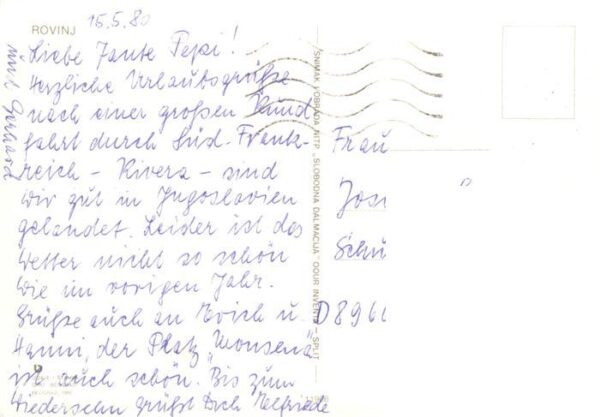 ROVINJ
15.5.80
Liebe Tante Pepi!
Herzliche Urlaubsgrüße
nach einer großen Rund
fahrt durch Süd-Frank-
reich - Rivera - sind
wir gut in Jugoslavien
gelandet. Leider ist das
Wetter nicht so schön
wie im vorigen Jahr.
Grüße auch an Erich u.
Hanni, der Platz „Monsena"
ist auch schön. Bis zum
Wiedersehn grüßt Dich Helfriede
und Gerhard
SNIMAK I OBRADA NITP „SLOBODNA DALMACIJA" OOUR INVENTA - SPLIT
Frau
Josi
Schu
D 896